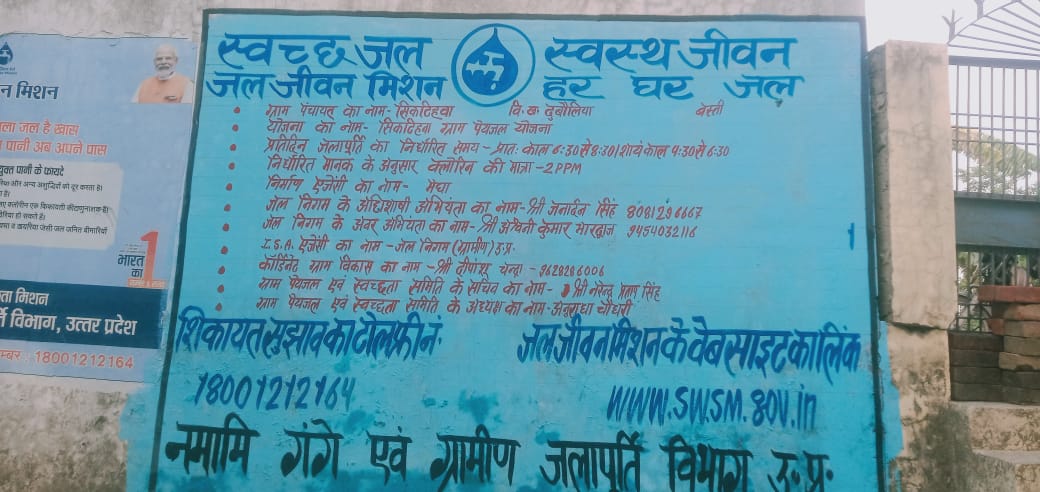 न मिशन
ला जल है खास
पानी अब अपने पास
युक्त पानी के फायदे
रिया और अन्य अशुद्धियों को दूर करता है।
ता है।
हो सकते हैं।
भारत
का
1
ता मिशन
र्ति विभाग, उत्तर प्रदेश
म्बर : 18001212164
स्वच्छ जल स्वस्थ जीवन
जल जीवन मिशन हर घर जल
ग्राम पंचायत का नाम- सिकटिहवा वि.ख. दुबौलिया बस्ती
योजना का नाम- सिकटिहवा ग्राम पेयजल योजना
प्रतिदिन जलापूर्ति का निर्धारित समय- प्रातः काल 6:30 से 8:30/सायं काल 4:30 से 6:30
निर्धारित मानक के अनुसार क्लोरिन की मात्रा -2PPM
निर्माण ऐजेंसी का नाम- मेघा
जल निगम के अधिशाषी अभियंता का नाम- श्री जनार्दन सिंह 8081296667
जल निगम के अवर अभियंता का नाम- श्री अश्विनी कुमार भारद्वाज 9454032116
I.S.A. ऐजेंसी का नाम -जल निगम (ग्रामीण) उ.प्र.
कॉर्डिनेट ग्राम विकास का नाम -श्री दीपांकर चन्द्रा -9628286006
ग्राम पेयजल एवं स्वच्छता समिति के सचिव का नाम- श्री नरेन्द्र प्रताप सिंह
ग्राम पेयजल एवं स्वच्छता समिति के अध्यक्ष का नाम- अनुराधा चौधरी
शिकायत सुझाव का टोल फ्री नं. जल जीवन मिशन के वेबसाइट का लिंक
18001212164 WWW.SWSM.gov.in
नमामि गंगे एवं ग्रामीण जलापूर्ति विभाग उ.प्र.